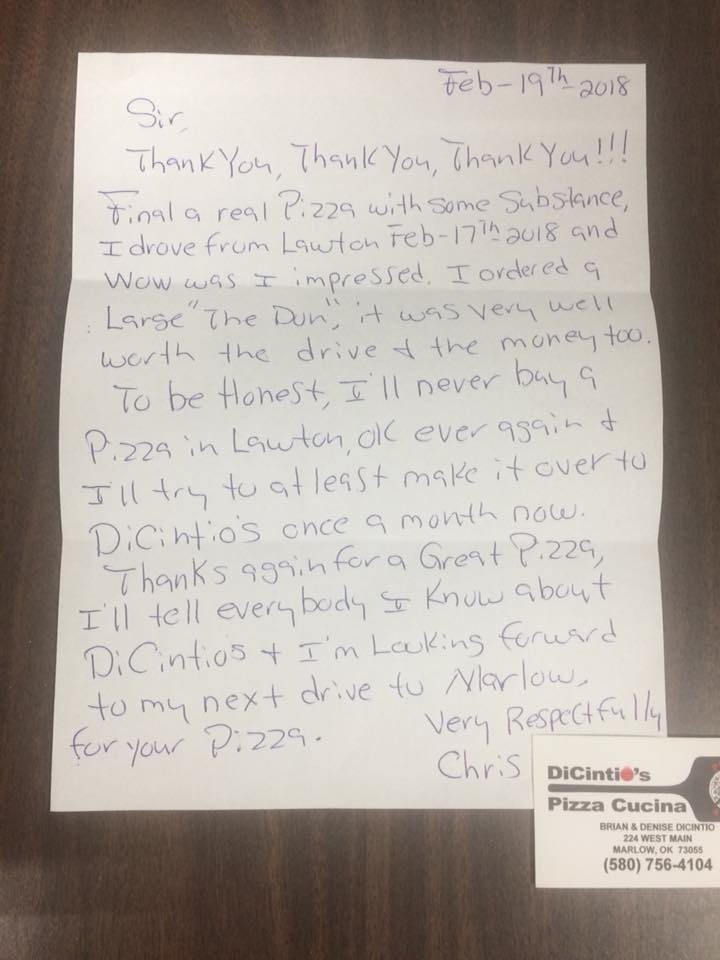 Feb-19Th-2018
Sir,
Thank You, Thank You, Thank You!!!
Final a real Pizza with some Substance,
I drove from Lawton Feb-17Th-2018 and
Wow was I impressed. I ordered a
Large "The Don", it was very well
worth the drive & the money too.
To be Honest, I'll never buy a
Pizza in Lawton, OK ever again &
I'll try to at least make it over to
DiCintio's once a month now.
Thanks again for a Great Pizza,
I'll tell everybody I Know about
DiCintio's & I'm Looking forward
to my next drive to Marlow,
for your Pizza.
Very Respectfully
Chris
DiCintio's
Pizza Cucina
BRIAN & DENISE DICINTIO
224 WEST MAIN
MARLOW, OK 73055
(580) 756-4104